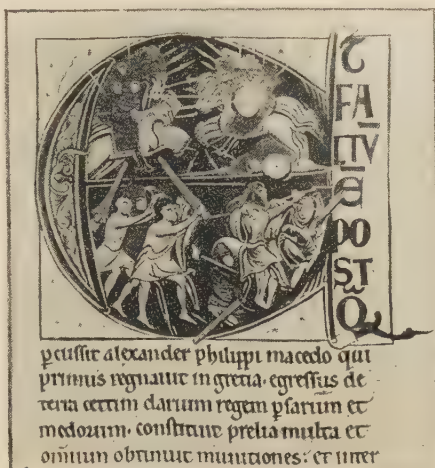 T
FA
CTU
E
PO
ST
Q
pcussit alexander philippi macedo qui
primus regnauit in gretia. egressus de
terra cettim darium regem psarum et
medorum. constituit prelia multa et
omnium obtinuit munitiones: et inter